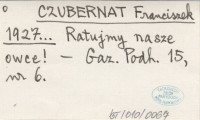 CZUBERNAT Franciszek
1927... Ratujmy nasze
owce! - Gaz. Podh. 15,
nr 6.